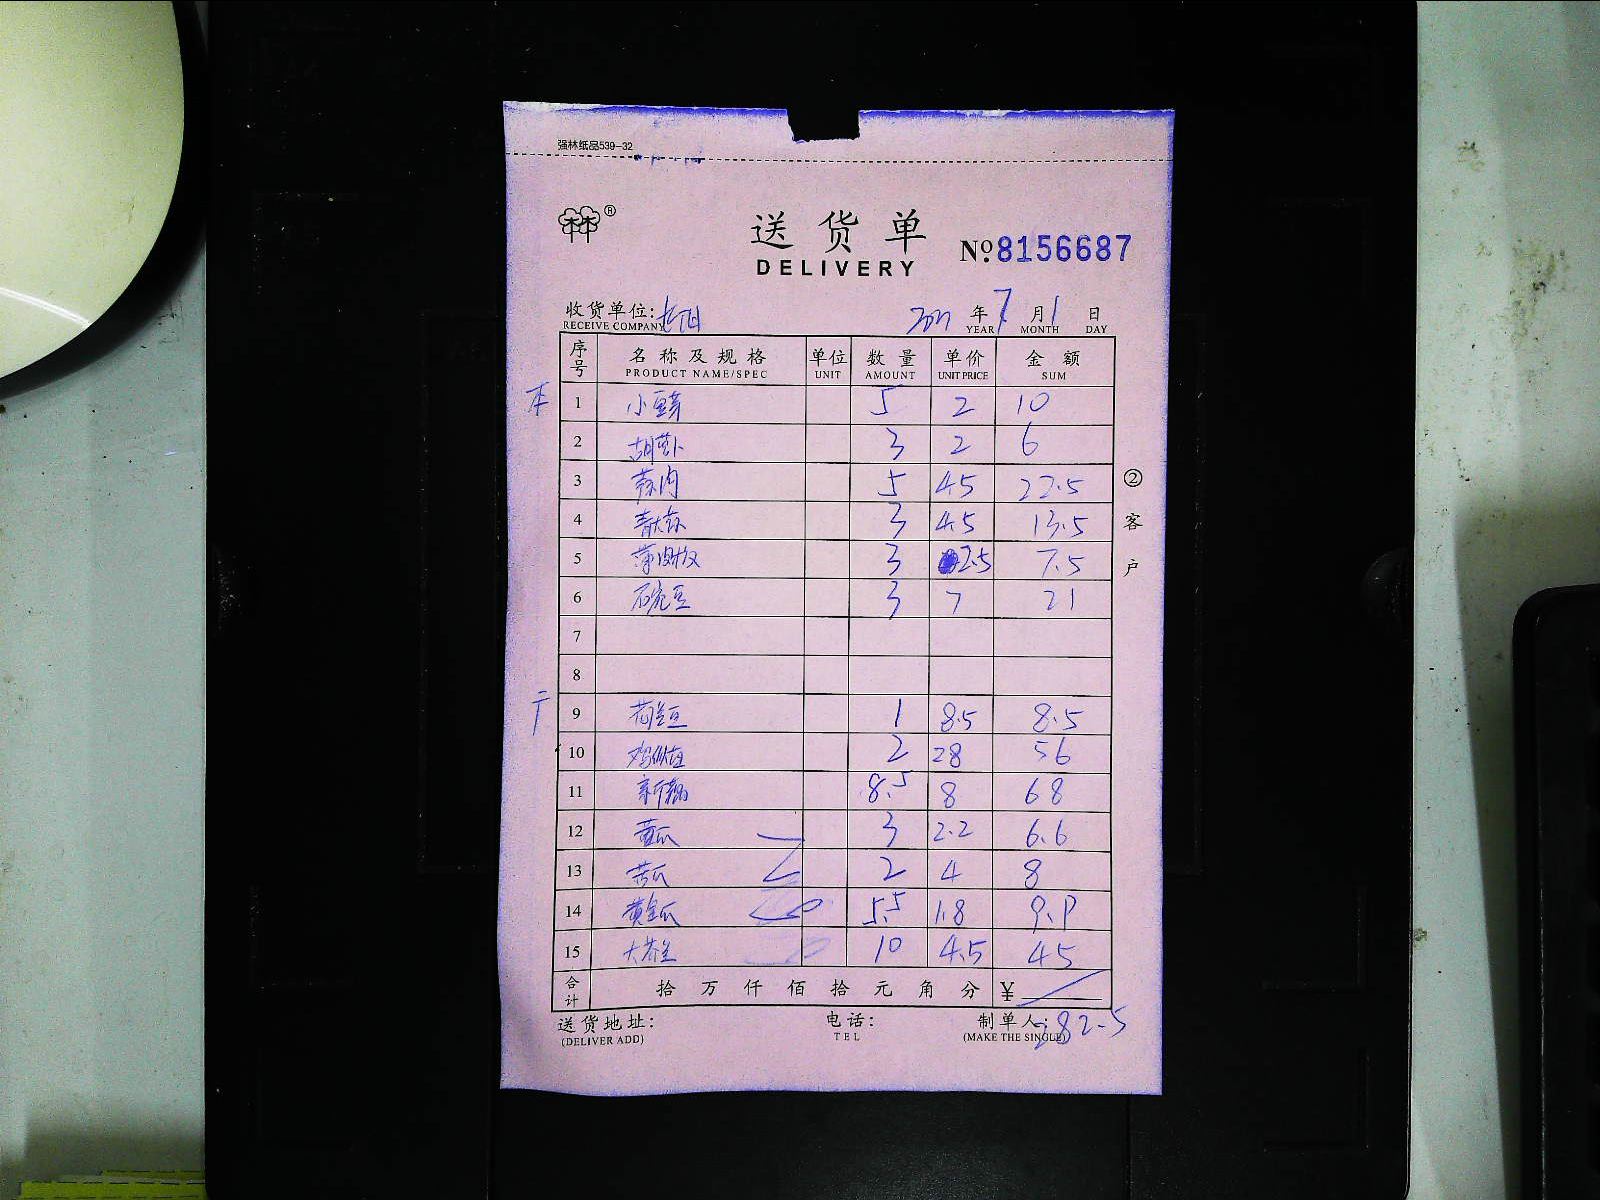 强林纸品539-32
®
送货单
DELIVERY
№8156687
收货单位:
RECEIVE COMPANY
2021 年 7 月 1 日
YEAR MONTH DAY
序号 名称及规格 单位 数量 单价 金额
PRODUCT NAME/SPEC UNIT AMOUNT UNIT PRICE SUM
本 1 小豆芽 5 2 10
2 胡萝卜 3 2 6
3 蒜肉 5 4.5 22.5
4 3 4.5 13.5
5 3 2.5 7.5
6 豆 3 7 21
7
8
9 荷兰豆 1 8.5 8.5
10 2 28 56
11 8.5 8 68
12 黄瓜 3 2.2 6.6
13 苦瓜 2 4 8
14 黄金瓜 5.5 1.8 9.9
15 大 10 4.5 45
合计 拾万仟佰拾元角分 ¥
282.5
送货地址:
(DELIVER ADD)
电话:
TEL
制单人:
(MAKE THE SINGLE)
②客户